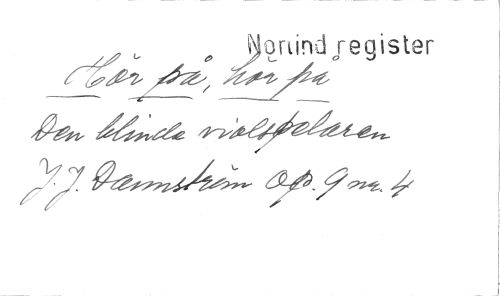 Norlind register
Hör på, hör på
Den blinda violspelaren
J. J. Dannström op. 9 nr. 4